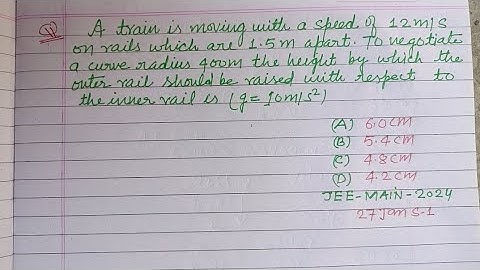 Q A train is moving with a speed of 12m/s
on rails which are 1.5m apart. To negotiate
a curve radius 400m the height by which the
outer rail should be raised with respect to
the inner rail is (g=10m/s²)
(A) 6.0cm
(B) 5.4cm
(C) 4.8cm
(D) 4.2cm
JEE-MAIN-2024
27 Jan S-1